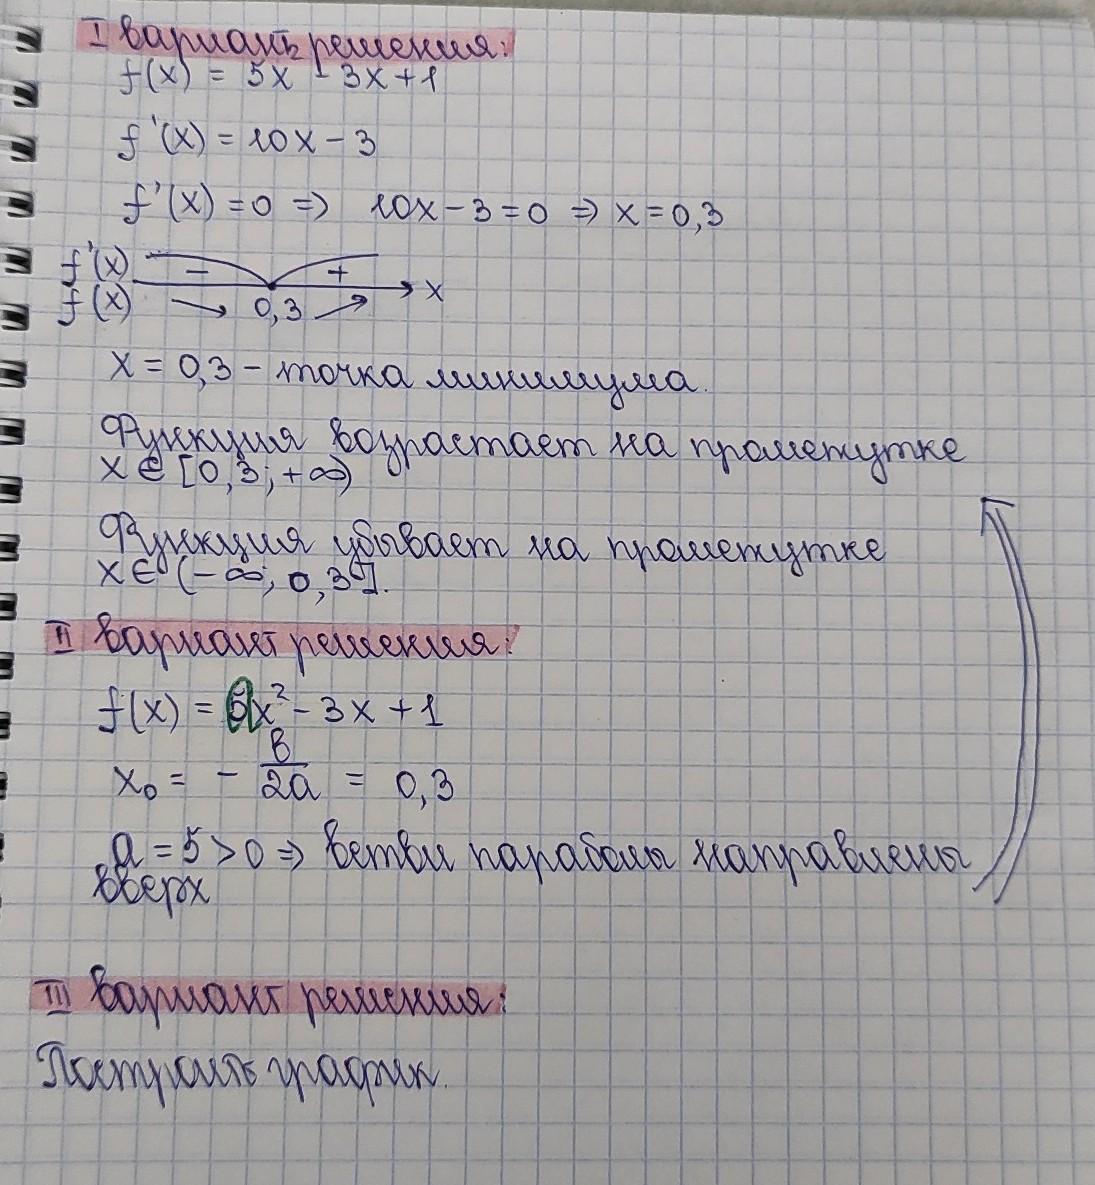 I вариантъ решения:
f(x) = 5x - 3x + 1
f'(x) = 10x - 3
f'(x) = 0 => 10x - 3 = 0 => x = 0,3
f'(x) - +
f(x) 0,3 x
x = 0,3 - точка минимума.
Функция возрастает на промежутке
x ∈ [0,3; +∞)
Функция убывает на промежутке
x ∈ (-∞; 0,3].
II вариант решения:
f(x) = 5x² - 3x + 1
x₀ = - в/2a = 0,3
a = 5 > 0 => ветви параболы направлены
вверх
III вариант решения:
Построить график.